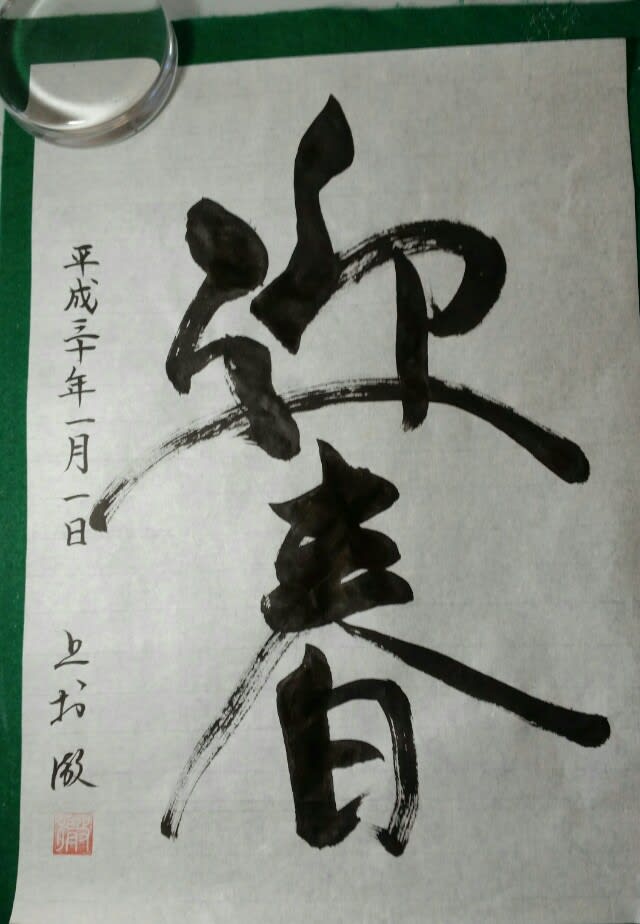 迎春
平成三十年一月一日
上村 徹